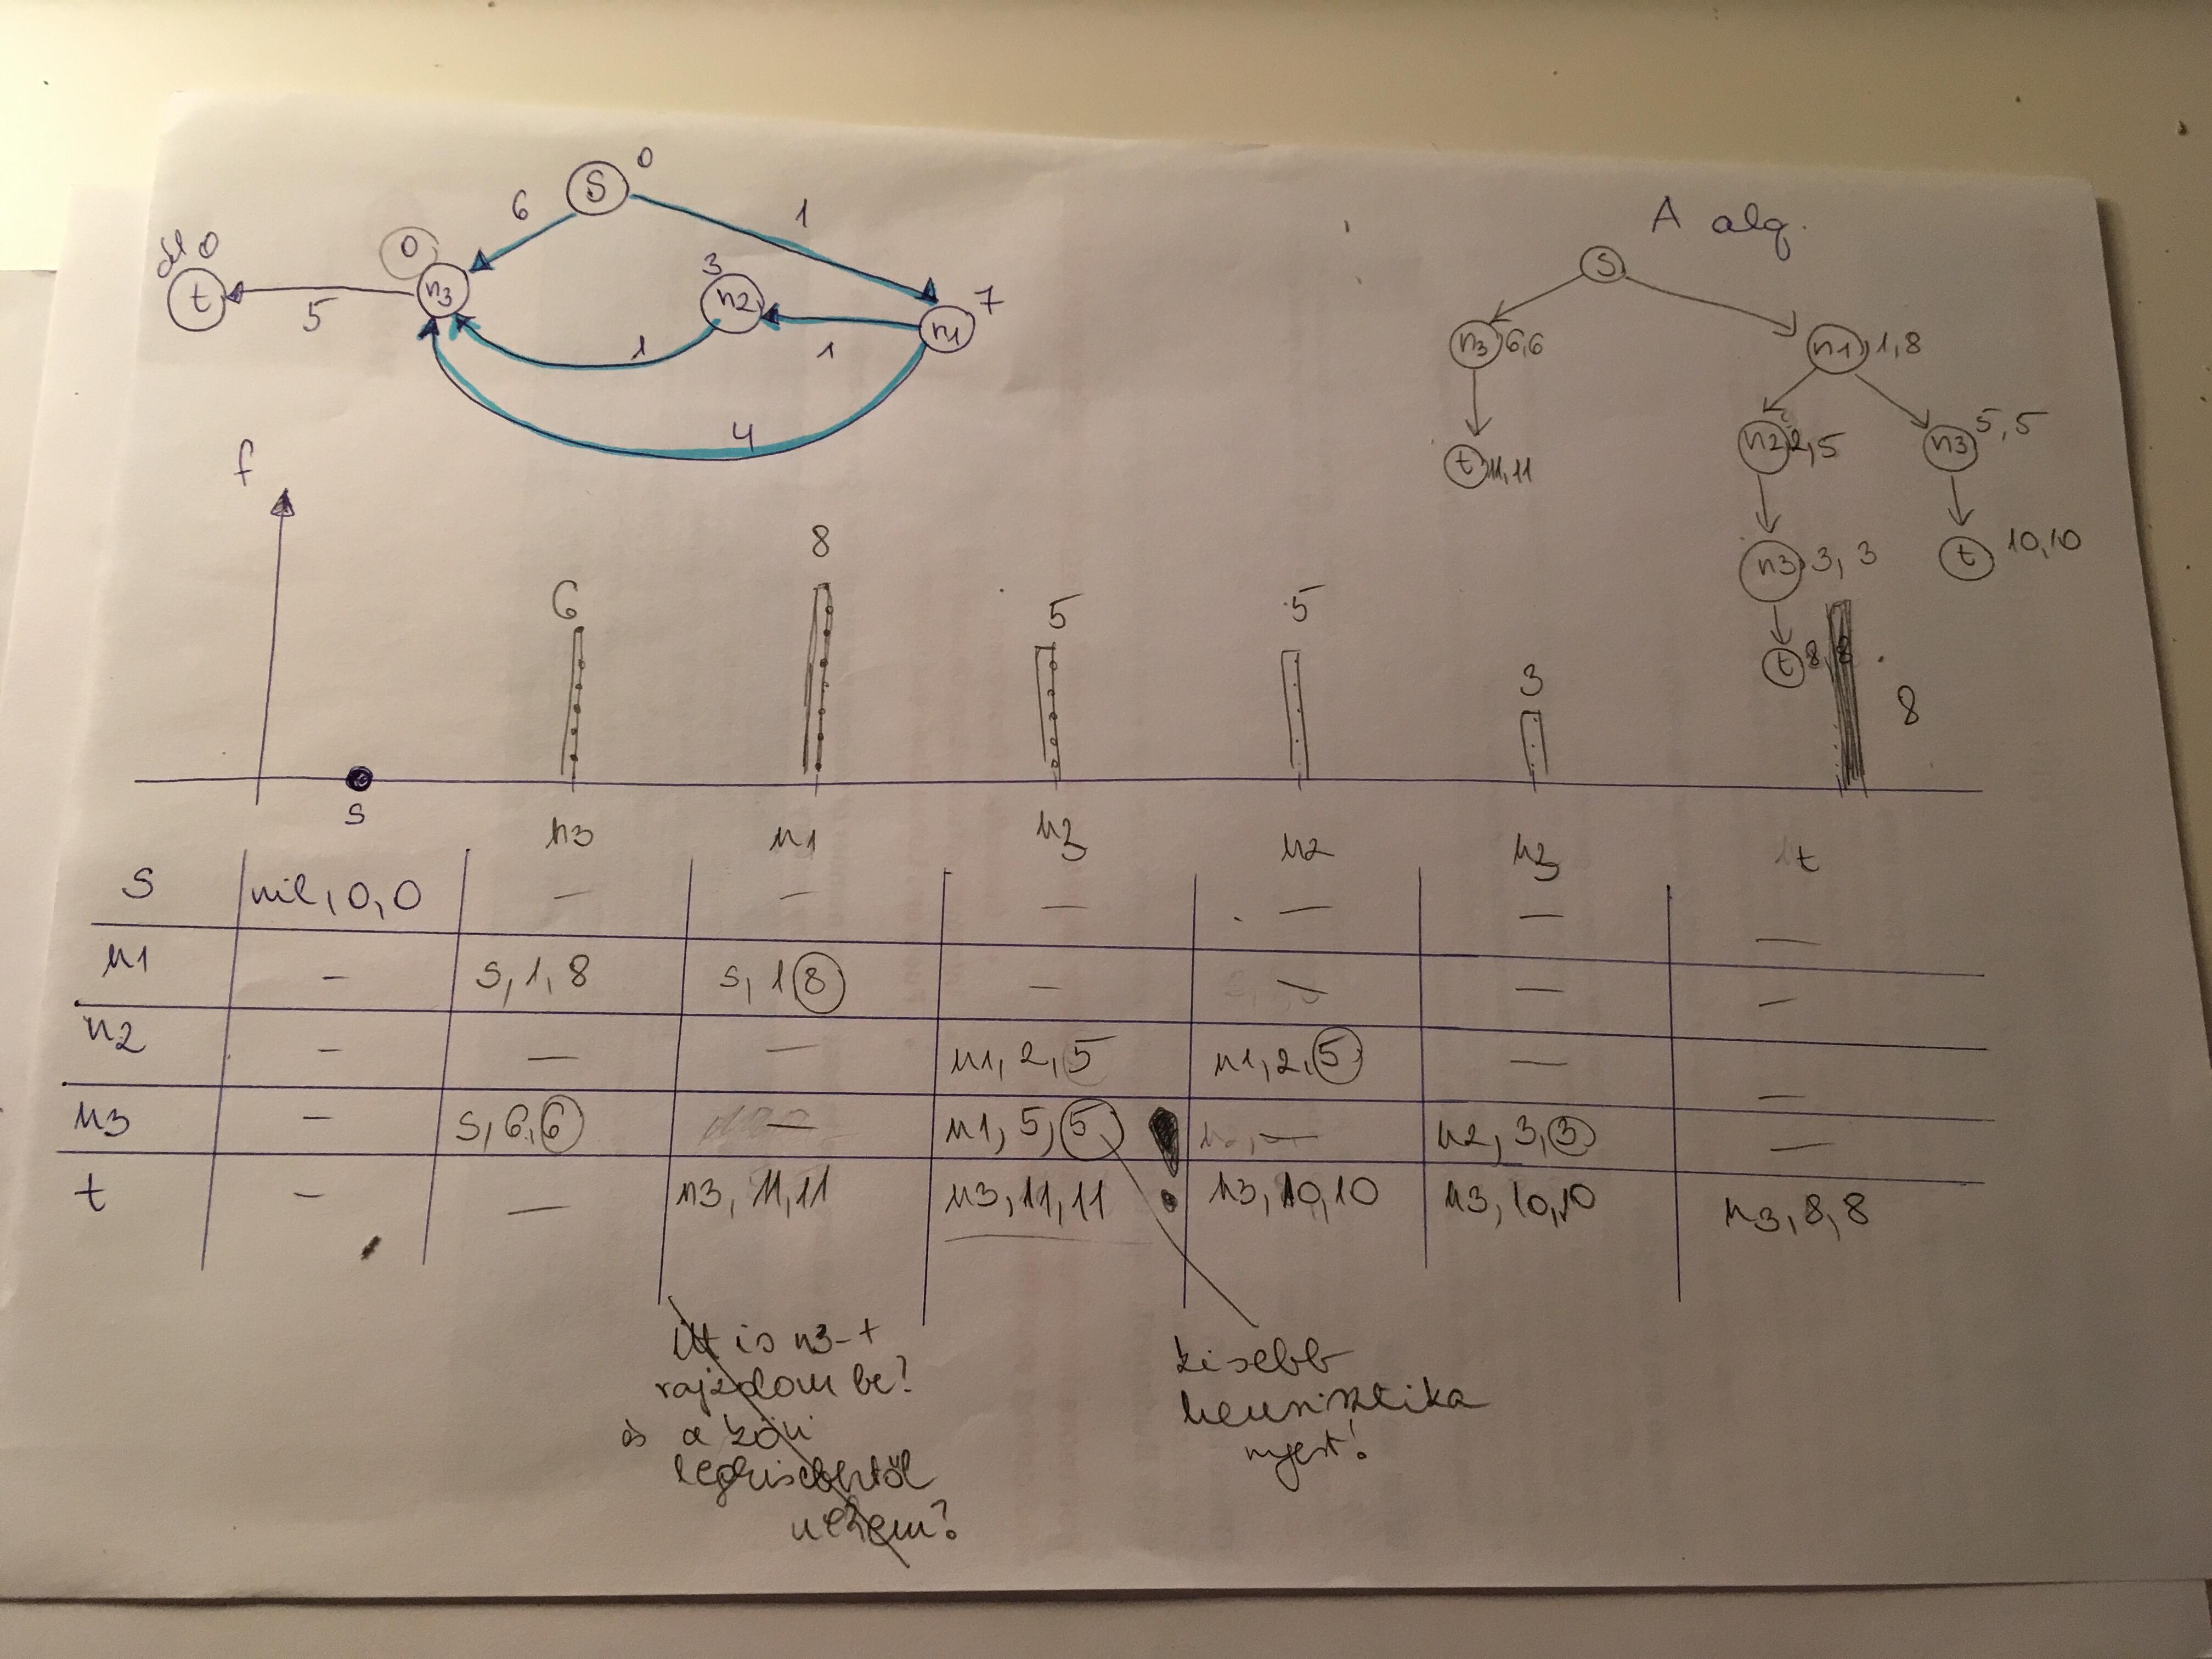 S 0
6
1
0
0
t
5
n3
3
n2
7
n1
1
1
4
A alg.
S
n3 6,6
n1 1,8
t 11,11
n2 2,5
n3 5,5
n3 3, 3
t 10,10
t 8,8
f
6
8
5
5
3
8
s
n3 n1 n3 n2 n3 t
s nil, 0, 0 — — — — — —
n1 — s, 1, 8 s, 1 8 — — — —
n2 — — — n1, 2, 5 n1, 2, 5 — —
n3 — s, 6, 6 — n1, 5, 5 ! — n2, 3, 3 —
t — — n3, 11, 11 n3, 11, 11 n3, 10, 10 n3, 10, 10 n3, 8, 8
itt is n3-t
rajzolom be?
és a köv
legkisebbtől
nézem?
kisebb
heurisztika
nyert!